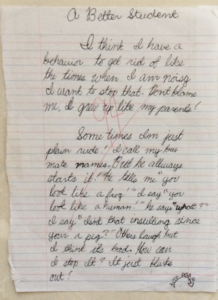 A Better Student
I think I have a
behavior to get rid of like
the times when I am noisy
I want to stop that. Dont blame
me, I grew up like my parents!
Some times Im just
plain rude! I call my bus
mate names. But he allways
starts it! He tells me "you
look like a frog" I say "you
look like a human!" he says "
I say "Isnt that insulting since
your a pig?" Others laugh but
I think its bad. How can
I stop it? It just blurts
out!